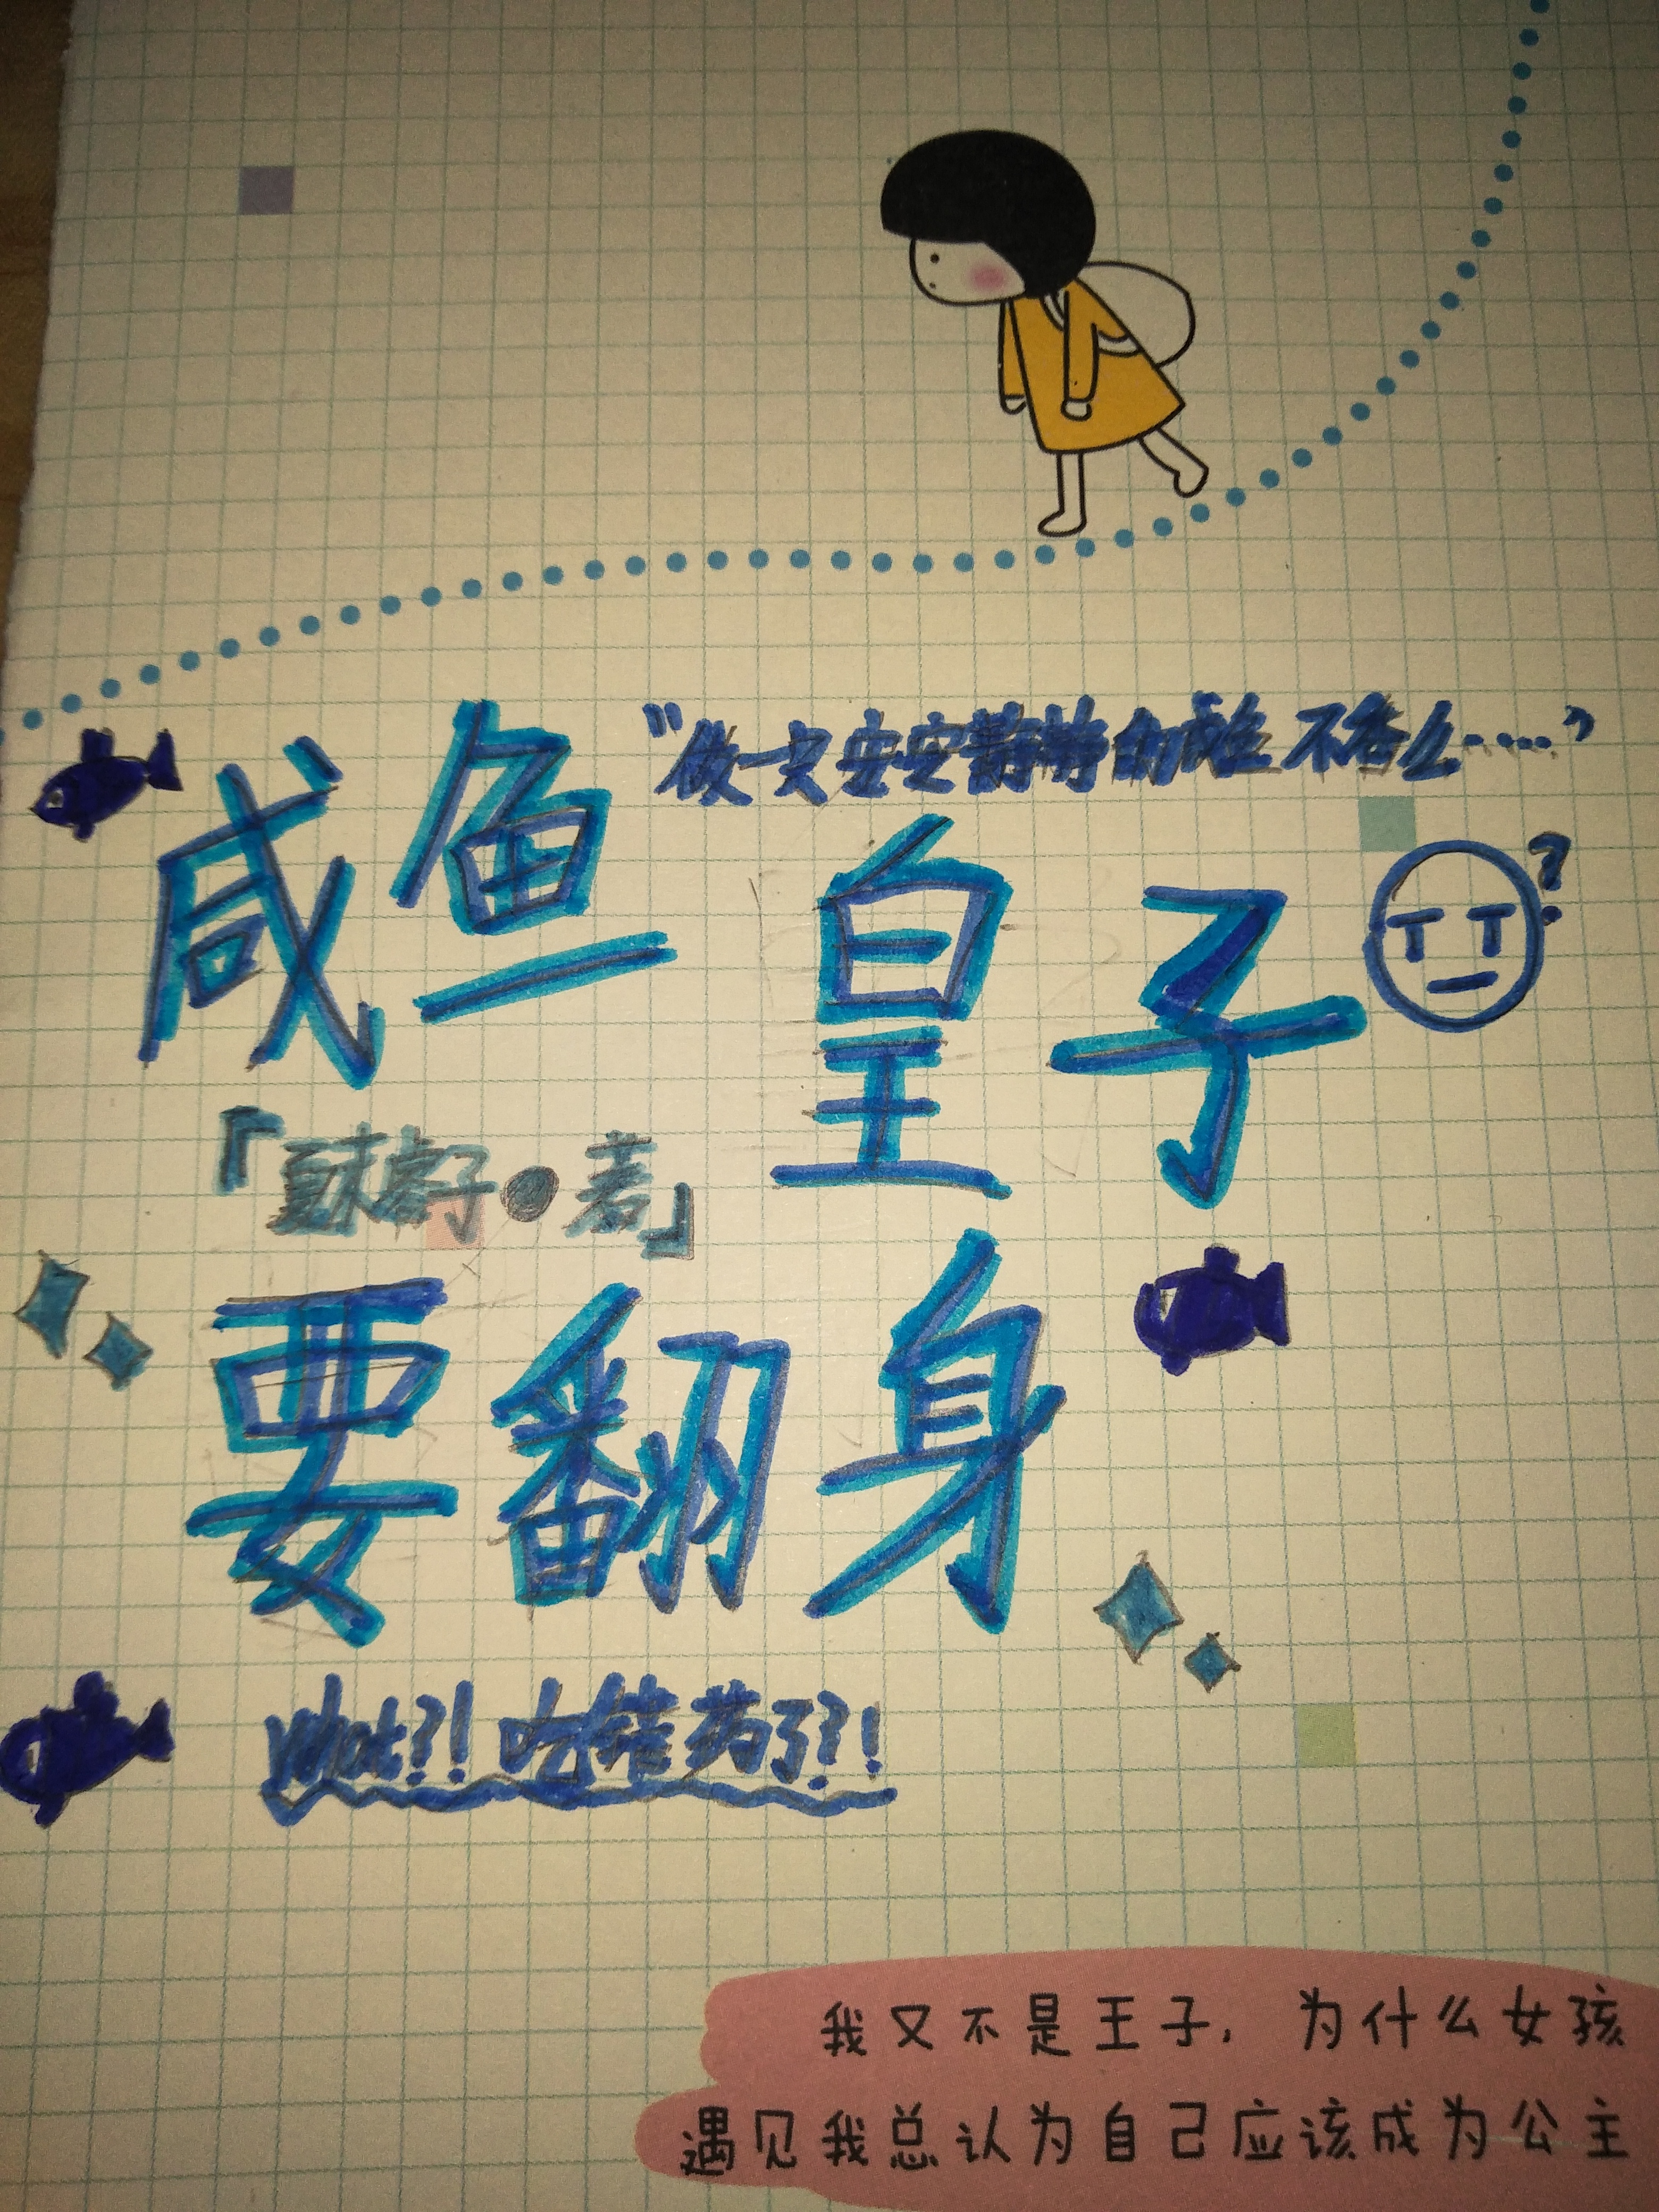 “做一只安安静静的咸鱼不香么……”
咸鱼
皇子
?
「夏末 子●著」
要翻身
What?! 吃错药了?!
我又不是王子, 为什么女孩
遇见我总认为自己应该成为公主